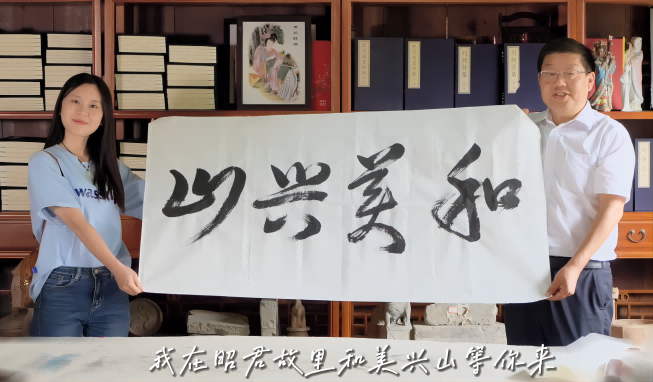 和美兴山
我在昭君故里和美兴山等你来